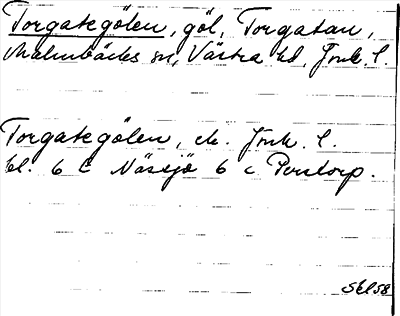 Torgategölen, göl, Torgatan,
Malmbäcks sn, Västra hd, Jönk. l.
Torgategölen, ek. Jönk. l.
bl. 6 C Nässjö 6 c Perstorp.
SEl58